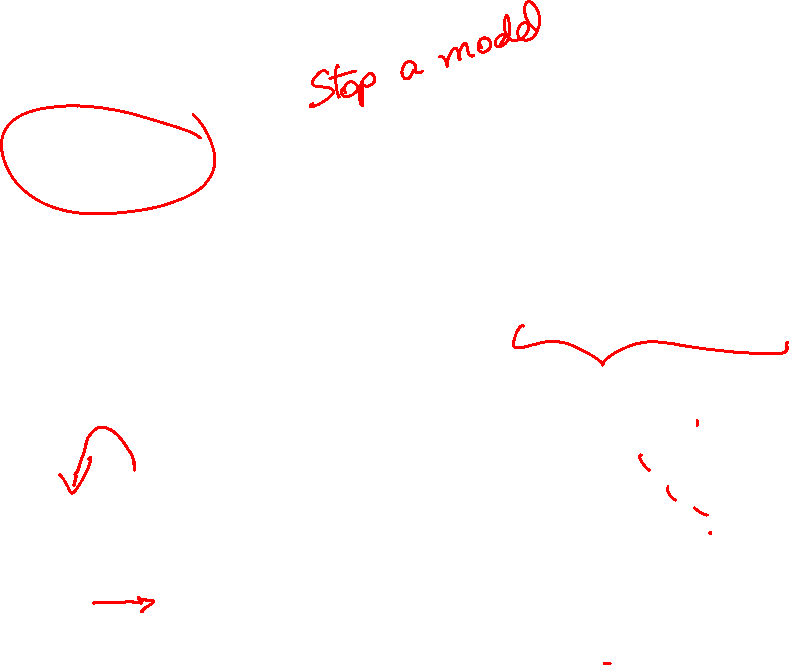 Stop a model